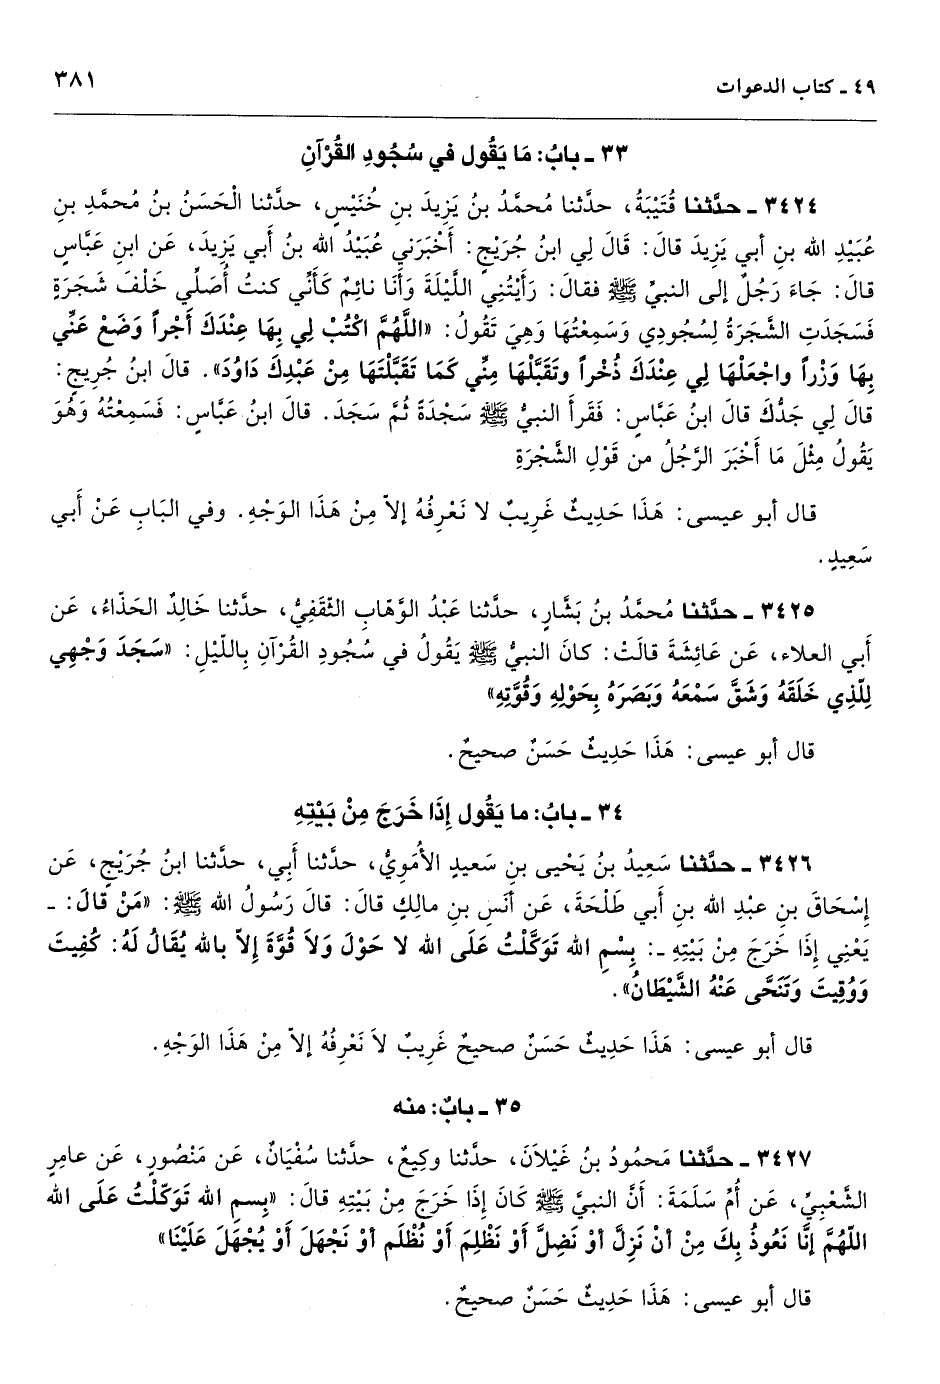 ٤٩ ـ كتاب الدعوات
٣٨١
٣٣ ـ بابُ: مَا يَقُول في سُجُودِ القُرْآنِ
٣٤٢٤ ـ حدَّثنا قُتَيْبَةُ، حدَّثنا مُحمَّدُ بنُ يَزِيدَ بنِ خُنَيْسٍ، حدَّثنا الْحَسَنُ بنُ مُحمَّدِ بنِ
عُبَيْدِ الله بنِ أبي يَزِيدَ قالَ: قَالَ لِي ابنُ جُرَيْجٍ: أَخْبَرَني عُبَيْدُ الله بنُ أَبي يَزِيدَ، عَن ابنِ عَبَّاسٍ
قالَ: جَاءَ رَجُلٌ إلى النبيِّ ﷺ فقالَ: رَأَيْتُنِي اللَّيْلَةَ وَأَنَا نائِمٌ كَأَنِّي كنتُ أُصَلِّي خَلْفَ شَجَرَةٍ
فَسَجَدَتِ الشَّجَرَةُ لِسُجُودِي وَسَمِعْتُهَا وَهِيَ تَقُولُ: «اللَّهُمَّ اكْتُبْ لِي بِهَا عِنْدَكَ أَجْراً وَضَعْ عَنِّي
بِهَا وَزْراً واجْعَلْهَا لِي عِنْدَكَ ذُخْراً وتَقَبَّلْهَا مِنِّي كَمَا تَقَبَّلْتَهَا مِنْ عَبْدِكَ دَاوُدَ». قالَ ابنُ جُرِيجٍ:
قالَ لِي جَدُّكَ قالَ ابنُ عَبَّاسٍ: فَقَرأَ النبيُّ ﷺ سَجْدَةً ثُمَّ سَجَدَ. قالَ ابنُ عَبَّاسٍ: فَسَمِعْتُهُ وَهُوَ
يَقُولُ مِثْلَ مَا أَخْبَرَ الرَّجُلُ من قَوْلِ الشَّجْرَةِ
قال أبو عيسى: هَذَا حَدِيثٌ غَرِيبٌ لا نَعْرِفُهُ إلاّ مِنْ هَذَا الوَجْهِ. وفي البَابِ عَنْ أَبي
سَعِيدٍ.
٣٤٢٥ ـ حدَّثنا مُحمَّدُ بنُ بَشَّارٍ، حدَّثنا عَبْدُ الوَّهَابِ الثّقَفِيُّ، حدَّثنا خَالِدٌ الحَذّاءُ، عَن
أَبي العلاء، عَن عَائِشَةَ قالَتْ: كانَ النبيُّ ﷺ يَقُولُ في سُجُودِ القُرْآنِ بِاللّيْلِ: «سَجَدَ وَجْهِي
لِلّذِي خَلَقَهُ وَشَقَّ سَمْعَهُ وَبَصَرَهُ بِحَوْلِهِ وَقُوَّتِهِ»
قال أبو عيسى: هَذَا حَدِيثٌ حَسَنٌ صحيحٌ.
٣٤ ـ بابُ: ما يَقُول إِذَا خَرَجَ مِنْ بَيْتِهِ
٣٤٢٦ ـ حدَّثنا سَعِيدُ بنُ يَحْيى بنِ سَعيدٍ الأُمَوِيُّ، حدَّثنا أَبِي، حدَّثنا ابنُ جُرَيْجٍ، عَن
إِسْحَاقَ بنِ عبْدِ الله بنِ أبي طَلْحَةَ، عَن أنَسِ بنِ مالِكٍ قالَ: قالَ رَسُولُ الله ﷺ: «مَنْ قالَ: ـ
يَعْنِي إِذَا خَرَجَ مِنْ بَيْتِهِ ـ: بِسْمِ الله تَوَكَّلْتُ عَلَى الله لا حَوْلَ وَلاَ قُوَّةَ إِلاّ بالله يُقَالُ لَهُ: كُفِيتَ
وَوُقِيتَ وَتَنَحَّى عَنْهُ الشَّيْطَانُ».
قال أبو عيسى: هَذَا حَدِيثٌ حَسَنٌ صحيحٌ غَرِيبٌ لاَ نَعْرِفُهُ إلاّ مِنْ هَذَا الوَجْهِ.
٣٥ ـ بابٌ: منه
٣٤٢٧ ـ حدَّثنا مَحمُودُ بنُ غَيْلاَنَ، حدَّثنا وكِيعٌ، حدَّثنا سُفْيَانُ، عَن مَنْصُورٍ، عَن عامِرٍ
الشَّعْبِيِّ، عَن أُمِّ سَلَمَةَ: أنَّ النبيَّ ﷺ كَانَ إِذَا خَرَجَ مِنْ بَيْتِهِ قالَ: «بِسمِ الله تَوَكّلْتُ عَلَى الله
اللّهُمَّ إنَّا نَعُوذُ بِكَ مِنْ أنْ نَزِلَّ أوْ نَضِلَّ أَوْ نَظْلِمَ أَوْ نُظْلَم أوْ نَجْهَلَ أَوْ يُجْهَلَ عَلَيْنَا»
قال أبو عيسى: هَذَا حَدِيثٌ حَسَنٌ صحيحٌ.